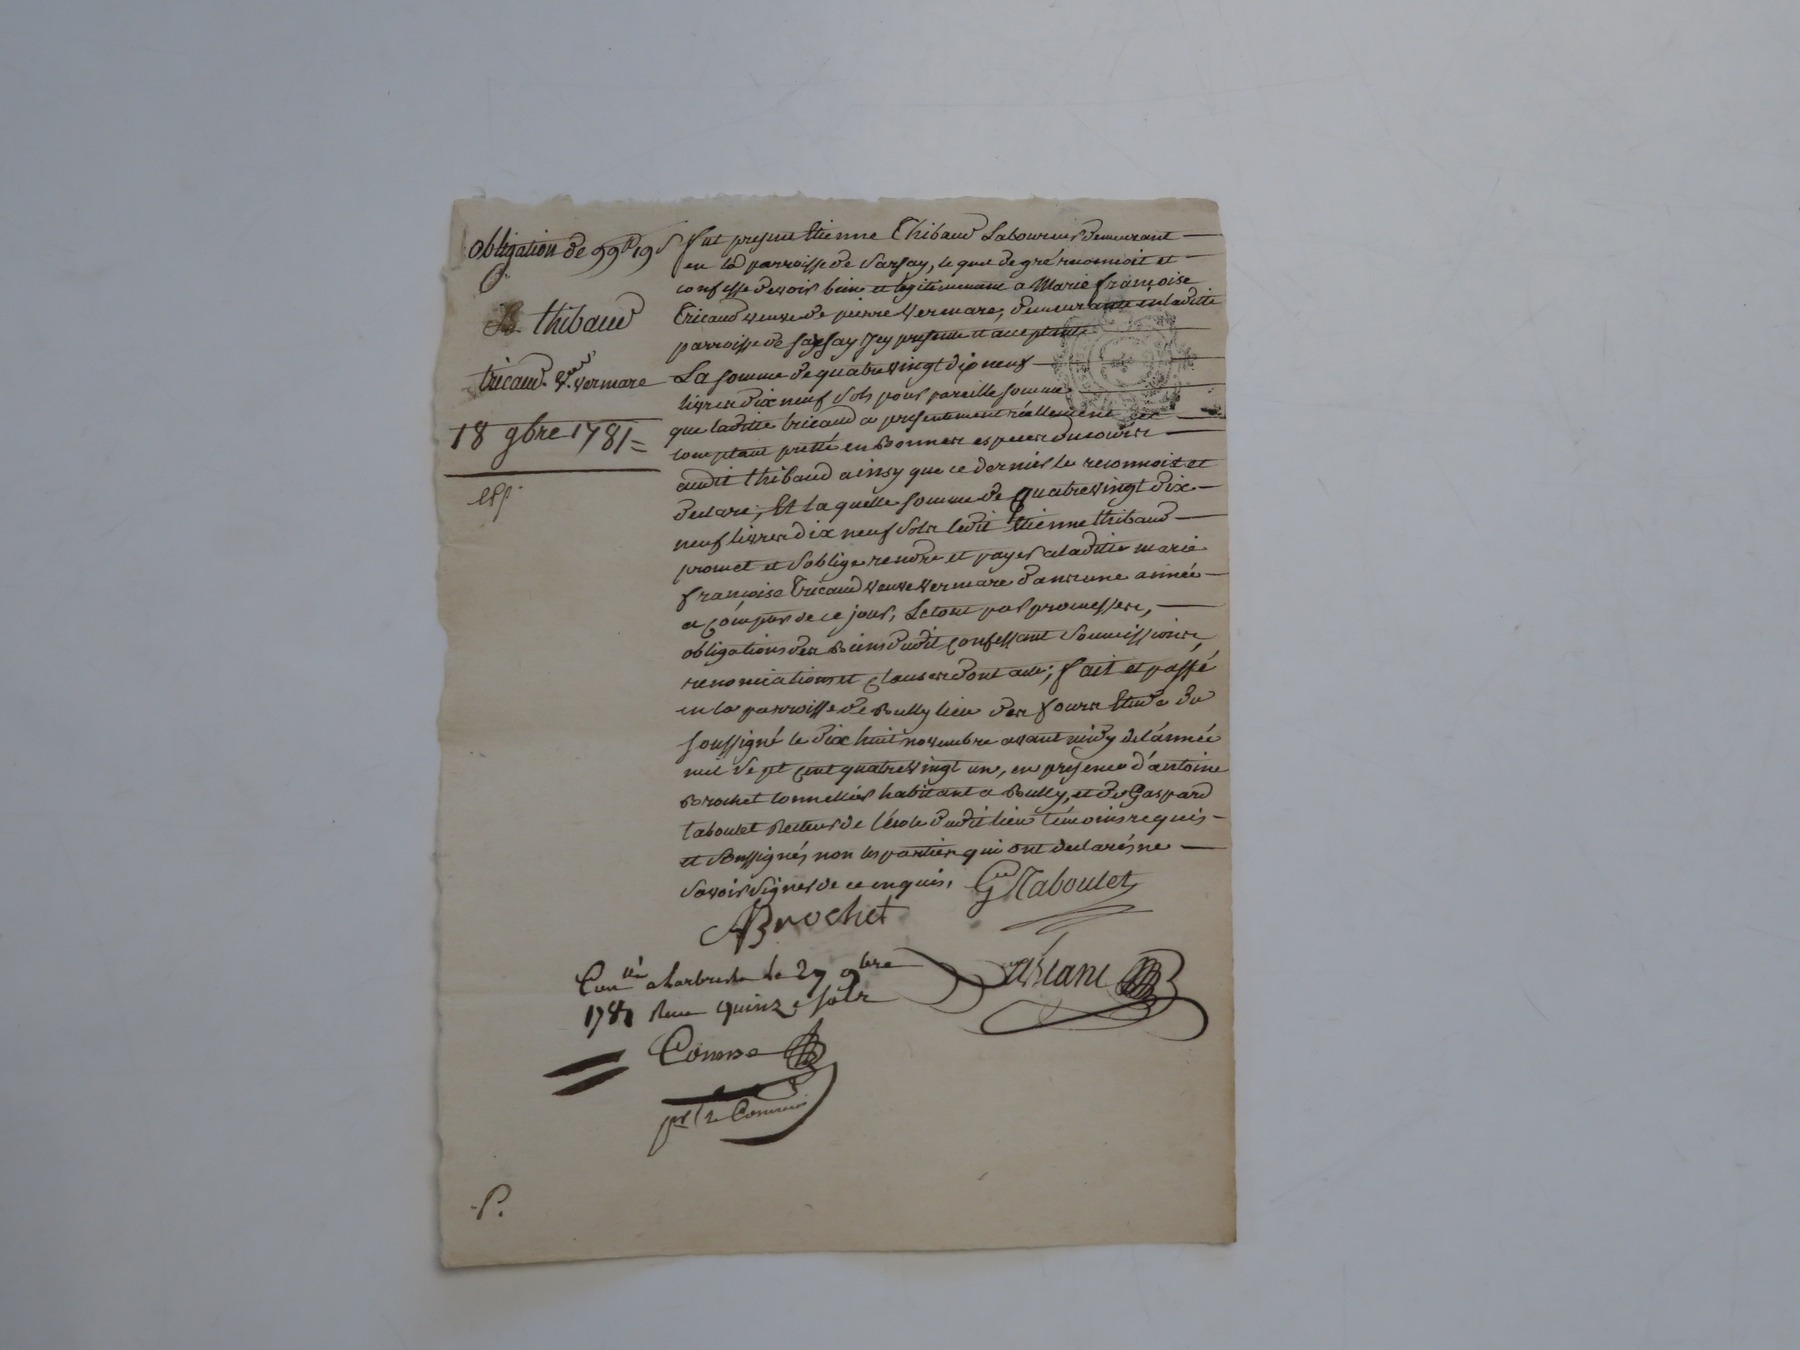 obligation de 99lt 19s
thibaud
tricaud vve vermare
18 9bre 1781
exp.
fut present Etienne Thibaud Laboureur demeurant
en la parroisse de Sarsay, le quel de gré reconnoit et
confesse devoir bien et legitimement a Marie françoise
Tricaud veuve de pierre Vermare, demeurante en laditte
parroisse de Sarsay icy presente et acceptante
La somme de quatre vingt dix neuf
livres dix neuf sols pour pareille somme
que laditte tricaud a presentement réellement et
comptant pretté en Bonnes especes du cours
audit thibaud ainsy que ce dernier le reconnoit et
declare; Et la quelle somme de quatre vingt dix
neuf livres dix neuf sols ledit Etienne thibaud
promet et s'oblige rendre et payer a laditte marie
françoise Tricaud veuve Vermare dans une année
a compter de ce jour, Le tout par promesses,
obligations des Biens dudit confessant Soumissions,
renonciations et clauses dont acte; fait et passé
en la parroisse de Bully lieu des fours Etude du
soussigné le dix huit novembre avant midy de l'année
mil sept cent quatre vingt un, en presence d'antoine
Brochet tonnellier habitant a Bully, et de Gaspard
taboulet Recteur de l'école dudit lieu témoins requis
et soussignés non les parties qui ont declaré ne
savoir signer de ce enquis.
G Taboulet
ABrochet
Conllé a Larbresle le 27 9bre
1781 Reçu quinze sols
P.